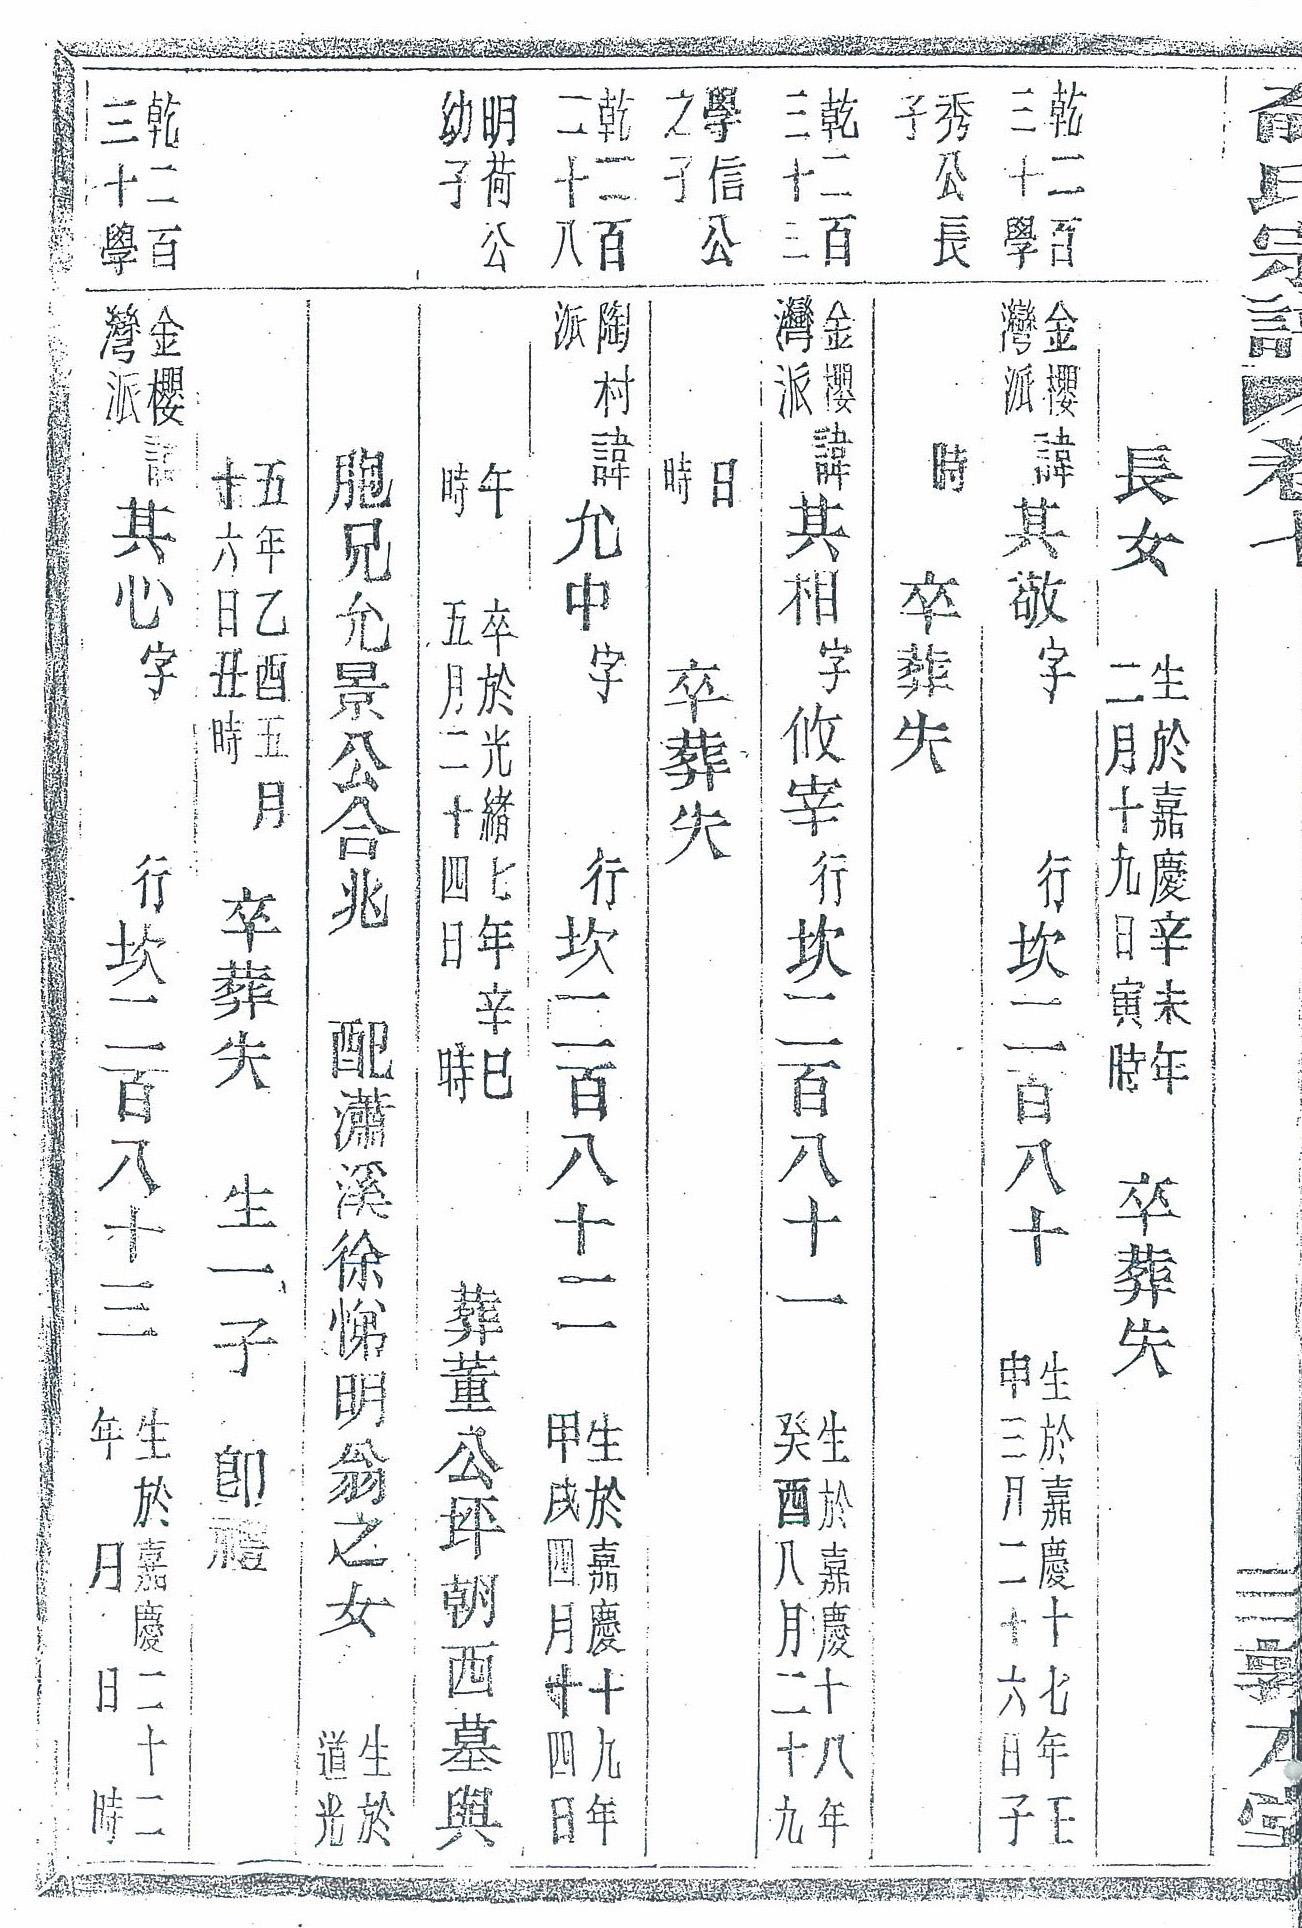 俞氏宗譜 卷七 三 敦本堂
長女 生於嘉慶辛未年二月十九日寅時 卒葬失
乾二百三十學秀公長子 金櫻灣派 諱其敬字 行坎二百八十 生於嘉慶十七年壬申三月二十六日子
時 卒葬失
乾二百三十三學信公之子 金櫻灣派 諱其相字攸宰行坎二百八十一 生於嘉慶十八年癸酉八月二十九
日 時 卒葬失
乾二百二十八明荷公幼子 陶村派 諱允中字 行坎二百八十二 生於嘉慶十九年甲戌四月十四日
午時 卒於光緒七年辛巳五月二十四日 時 葬董公坪朝西墓與
胞兄允景公合兆 配瀟溪徐悌明翁之女 生於道光
五年乙酉五月十六日丑時 卒葬失 生一子 卽禮
乾二百三十學 金櫻灣派 諱其心字 行坎二百八十三 生於嘉慶二十二年 月 日 時